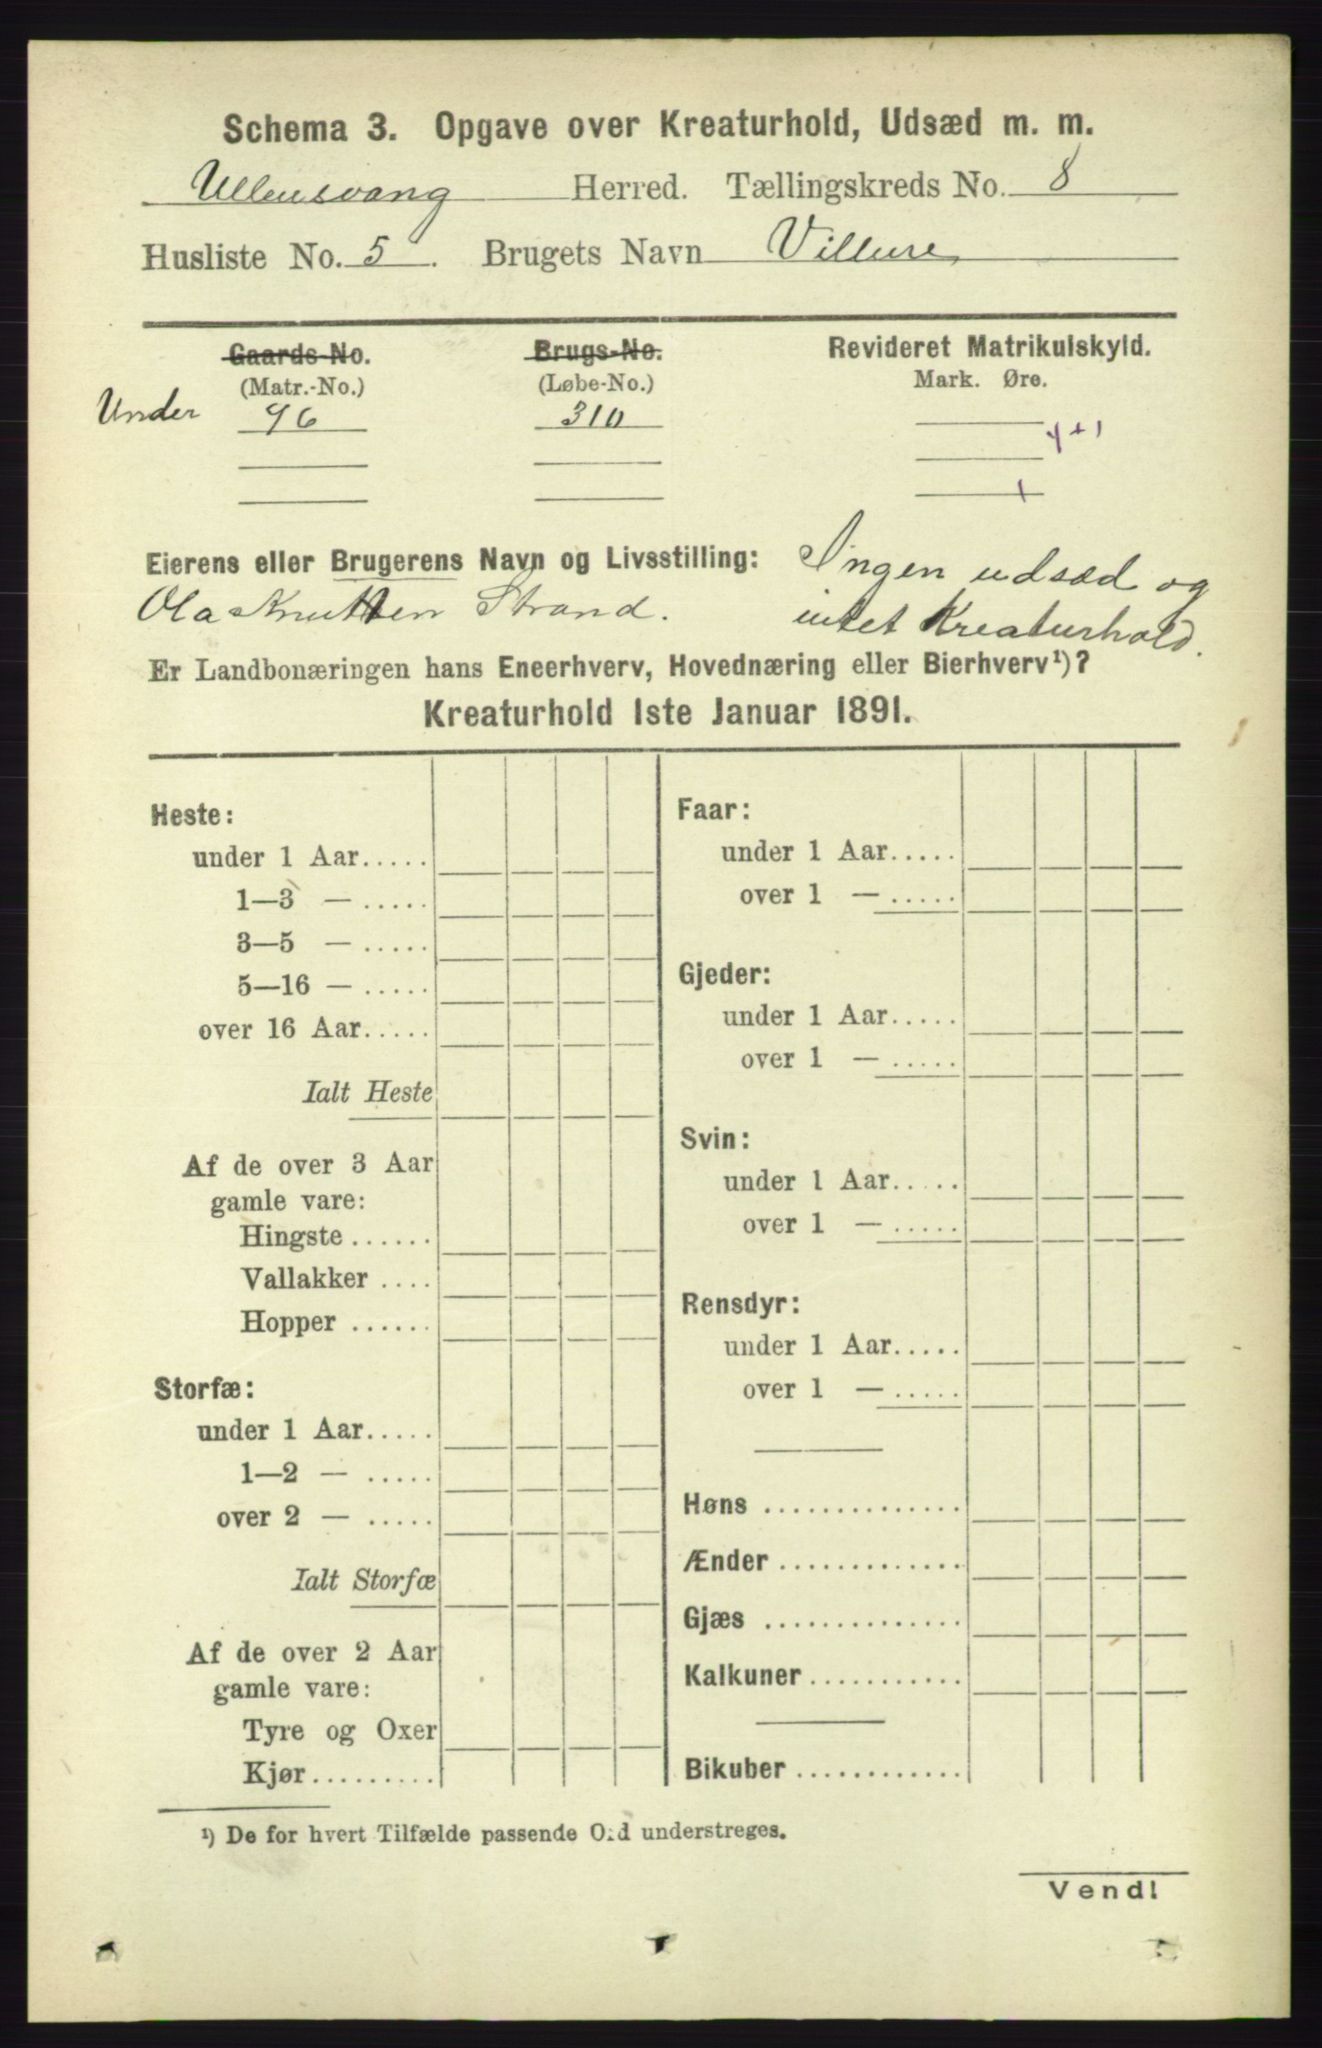 Schema 3. Opgave over Kreaturhold, Udsæd m. m.
Ullensvang Herred. Tællingskreds No. 8
Husliste No. 5. Brugets Navn Villure
Gaards-No. Brugs-No. Revideret Matrikulskyld.
(Matr.-No.) (Løbe-No.) Mark. Øre.
Under 96 310
Eierens eller Brugerens Navn og Livsstilling: Ingen udsæd og
Ola Knutsen Strand. intet Kreaturhold.
Er Landbonæringen hans Eneerhverv, Hovednæring eller Bierhverv¹)?
Kreaturhold 1ste Januar 1891.
Heste:
under 1 Aar.....
1—3 — .....
3—5 — .....
5—16 — .....
over 16 Aar.....
Ialt Heste
Af de over 3 Aar
gamle vare:
Hingste......
Vallakker ....
Hopper ......
Storfæ:
under 1 Aar.....
1—2 — .....
over 2 — .....
Ialt Storfæ
Af de over 2 Aar
gamle vare:
Tyre og Oxer
Kjør.........
Faar:
under 1 Aar.....
over 1 — .....
Gjeder:
under 1 Aar.....
over 1 — .....
Svin:
under 1 Aar.....
over 1 — .....
Rensdyr:
under 1 Aar.....
over 1 — .....
Høns ..............
Ænder .............
Gjæs ..............
Kalkuner...........
Bikuber ............
¹) De for hvert Tilfælde passende Ord understreges.
Vend!